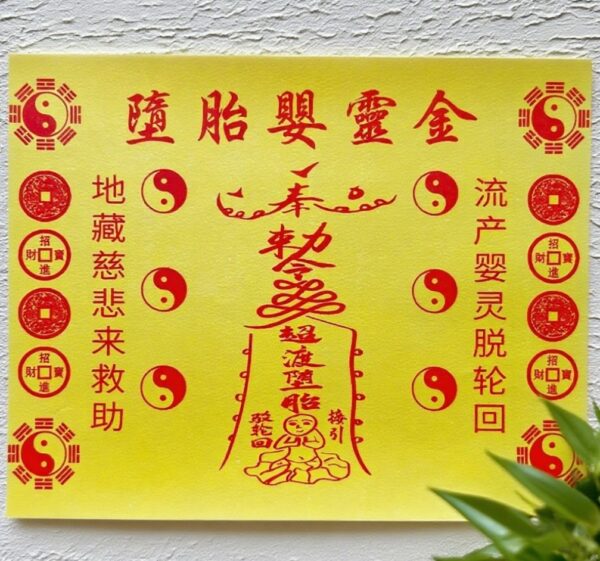 墮胎嬰靈金
流产婴灵脱轮回
地藏慈悲来救助
奉
勅令
超渡墮胎
接引
轮回
招財進寶
招財進寶
招財進寶
招財進寶